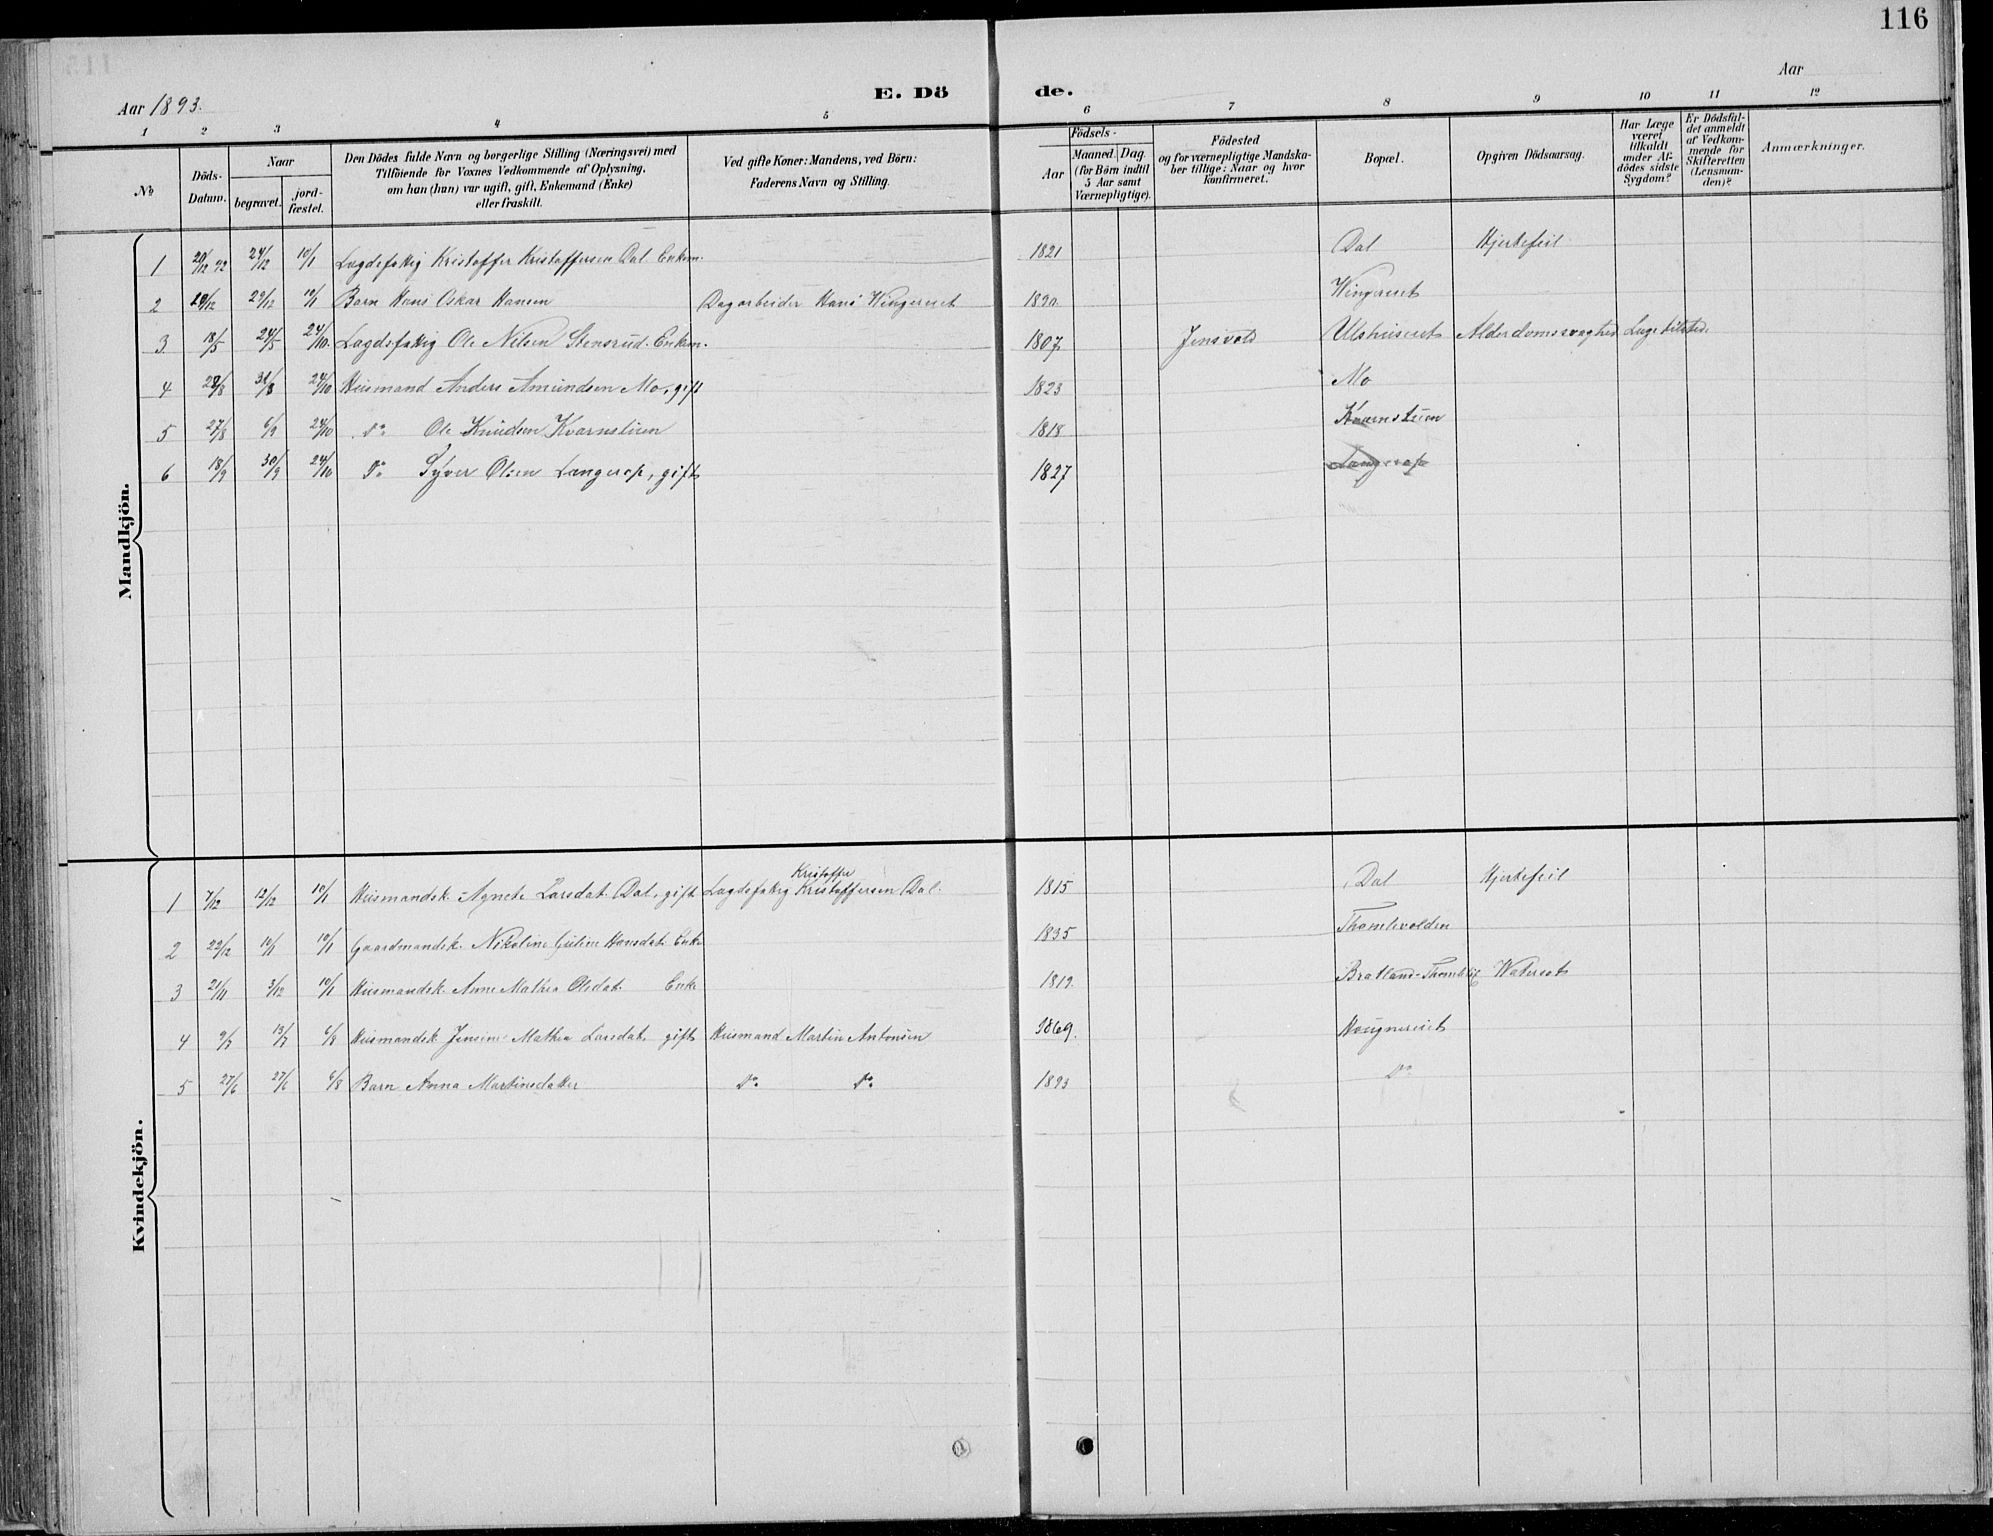 116
Aar 1893.
E. Dö de.
Aar
1 2 3 4 5 6 7 8 9 10 11 12
No
Döds-Datum.
Naar
begravet.
jord-fæstet.
Den Dödes fulde Navn og borgerlige Stilling (Næringsvei) med
Tilföiende for Voxnes Vedkommende af Oplysning,
om han (hun) var ugift, gift, Enkemand (Enke)
eller fraskilt.
Ved gifte Koner: Mandens, ved Börn:
Faderens Navn og Stilling.
Födsels-
Aar
Maaned. Dag.
(for Börn indtil
5 Aar samt
Værnepligtige).
Födested
og for værnepligtige Mandska-
ber tillige: Naar og hvor
konfirmeret.
Bopæl.
Opgiven Dödsaarsag.
Har Læge
været
tilkaldt
under Af-
dödes sidste
Sygdom?
Er Dödsfal-
det anmeldt
af Vedkom-
mende for
Skifteretten
(Lensman-
den)?
Anmærkninger.
Mandkjön.
1 20/12 92 24/12 10/1 Lægdsfattig Kristoffer Kristoffersen Dal Enkem. 1821 Dal Hjertefeil
2 29/12 10/1 Barn Hans Oskar Hansen Dagarbeider Hans Wingereiet Wingereiet
3 18/5 24/5 24/10 Lægdsfattig Ole Nilsen Stensrud. Enkem. 1807 Jensvold Alderdomssvaghed
4 28/8 31/8 24/10 Husmand Anders Amundsen Mo, gift 1823 Mo
5 27/8 6/9 24/10 Do Ole Knudsen Kvarnstuen 1818 Kvarnstuen
6 18/9 30/9 24/10 Do Syver Olsen Langerop, gift 1827 Langerop
Kvindekjön.
Kristoffer
1 7/12 12/12 10/1 Husmandsk. Agnete Larsdat. Dal, gift Lægdsfattig Kristoffersen Dal. 1815 Dal Hjertefeil
2 22/12 10/1 10/1 Gaardmandsk. Nikoline Guline Hansdat. Enke 1835 Thomlevolden
3 21/11 3/12 10/1 Husmandsk. Anne Mathea Olsdat. Enke 1819 Bratland Watersot
4 9/7 13/7 6/8 Husmandsk. Jensine Mathea Larsdat. gift Husmand Martin Antonsen 1869. Haugnereiet
5 27/6 27/6 6/8 Barn Anna Martinsdatter Do Do 1893 Do